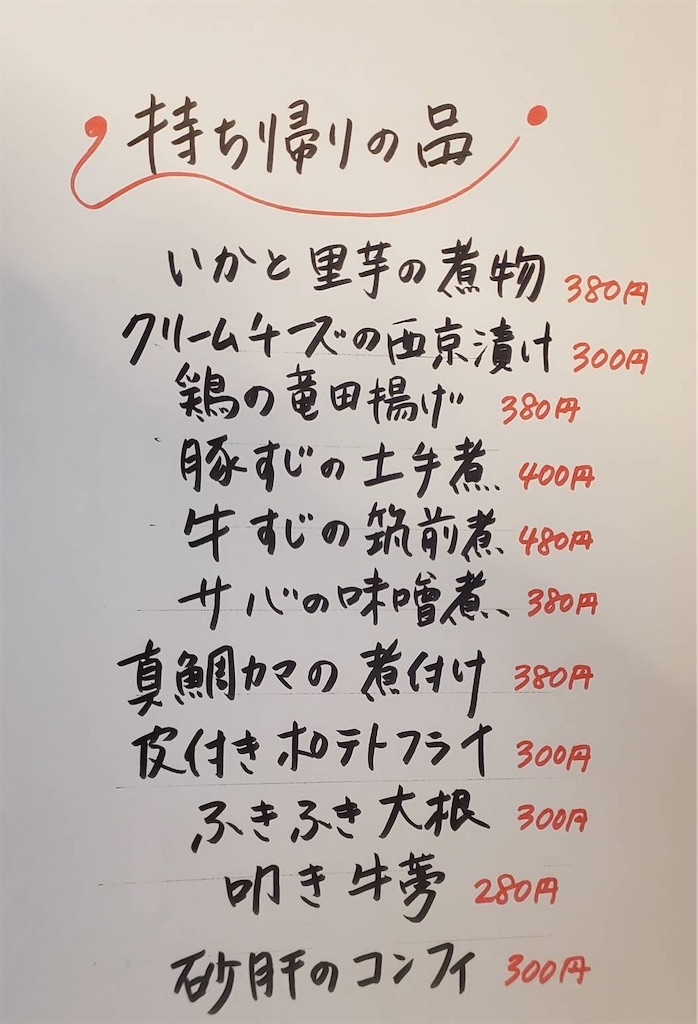 持ち帰りの品
いかと里芋の煮物 380円
クリームチーズの西京漬け 300円
鶏の竜田揚げ 380円
豚すじの土手煮 400円
牛すじの筑前煮 480円
サバの味噌煮 380円
真鯛カマの煮付け 380円
皮付きポテトフライ 300円
ふきふき大根 300円
叩き牛蒡 280円
砂肝のコンフィ 300円